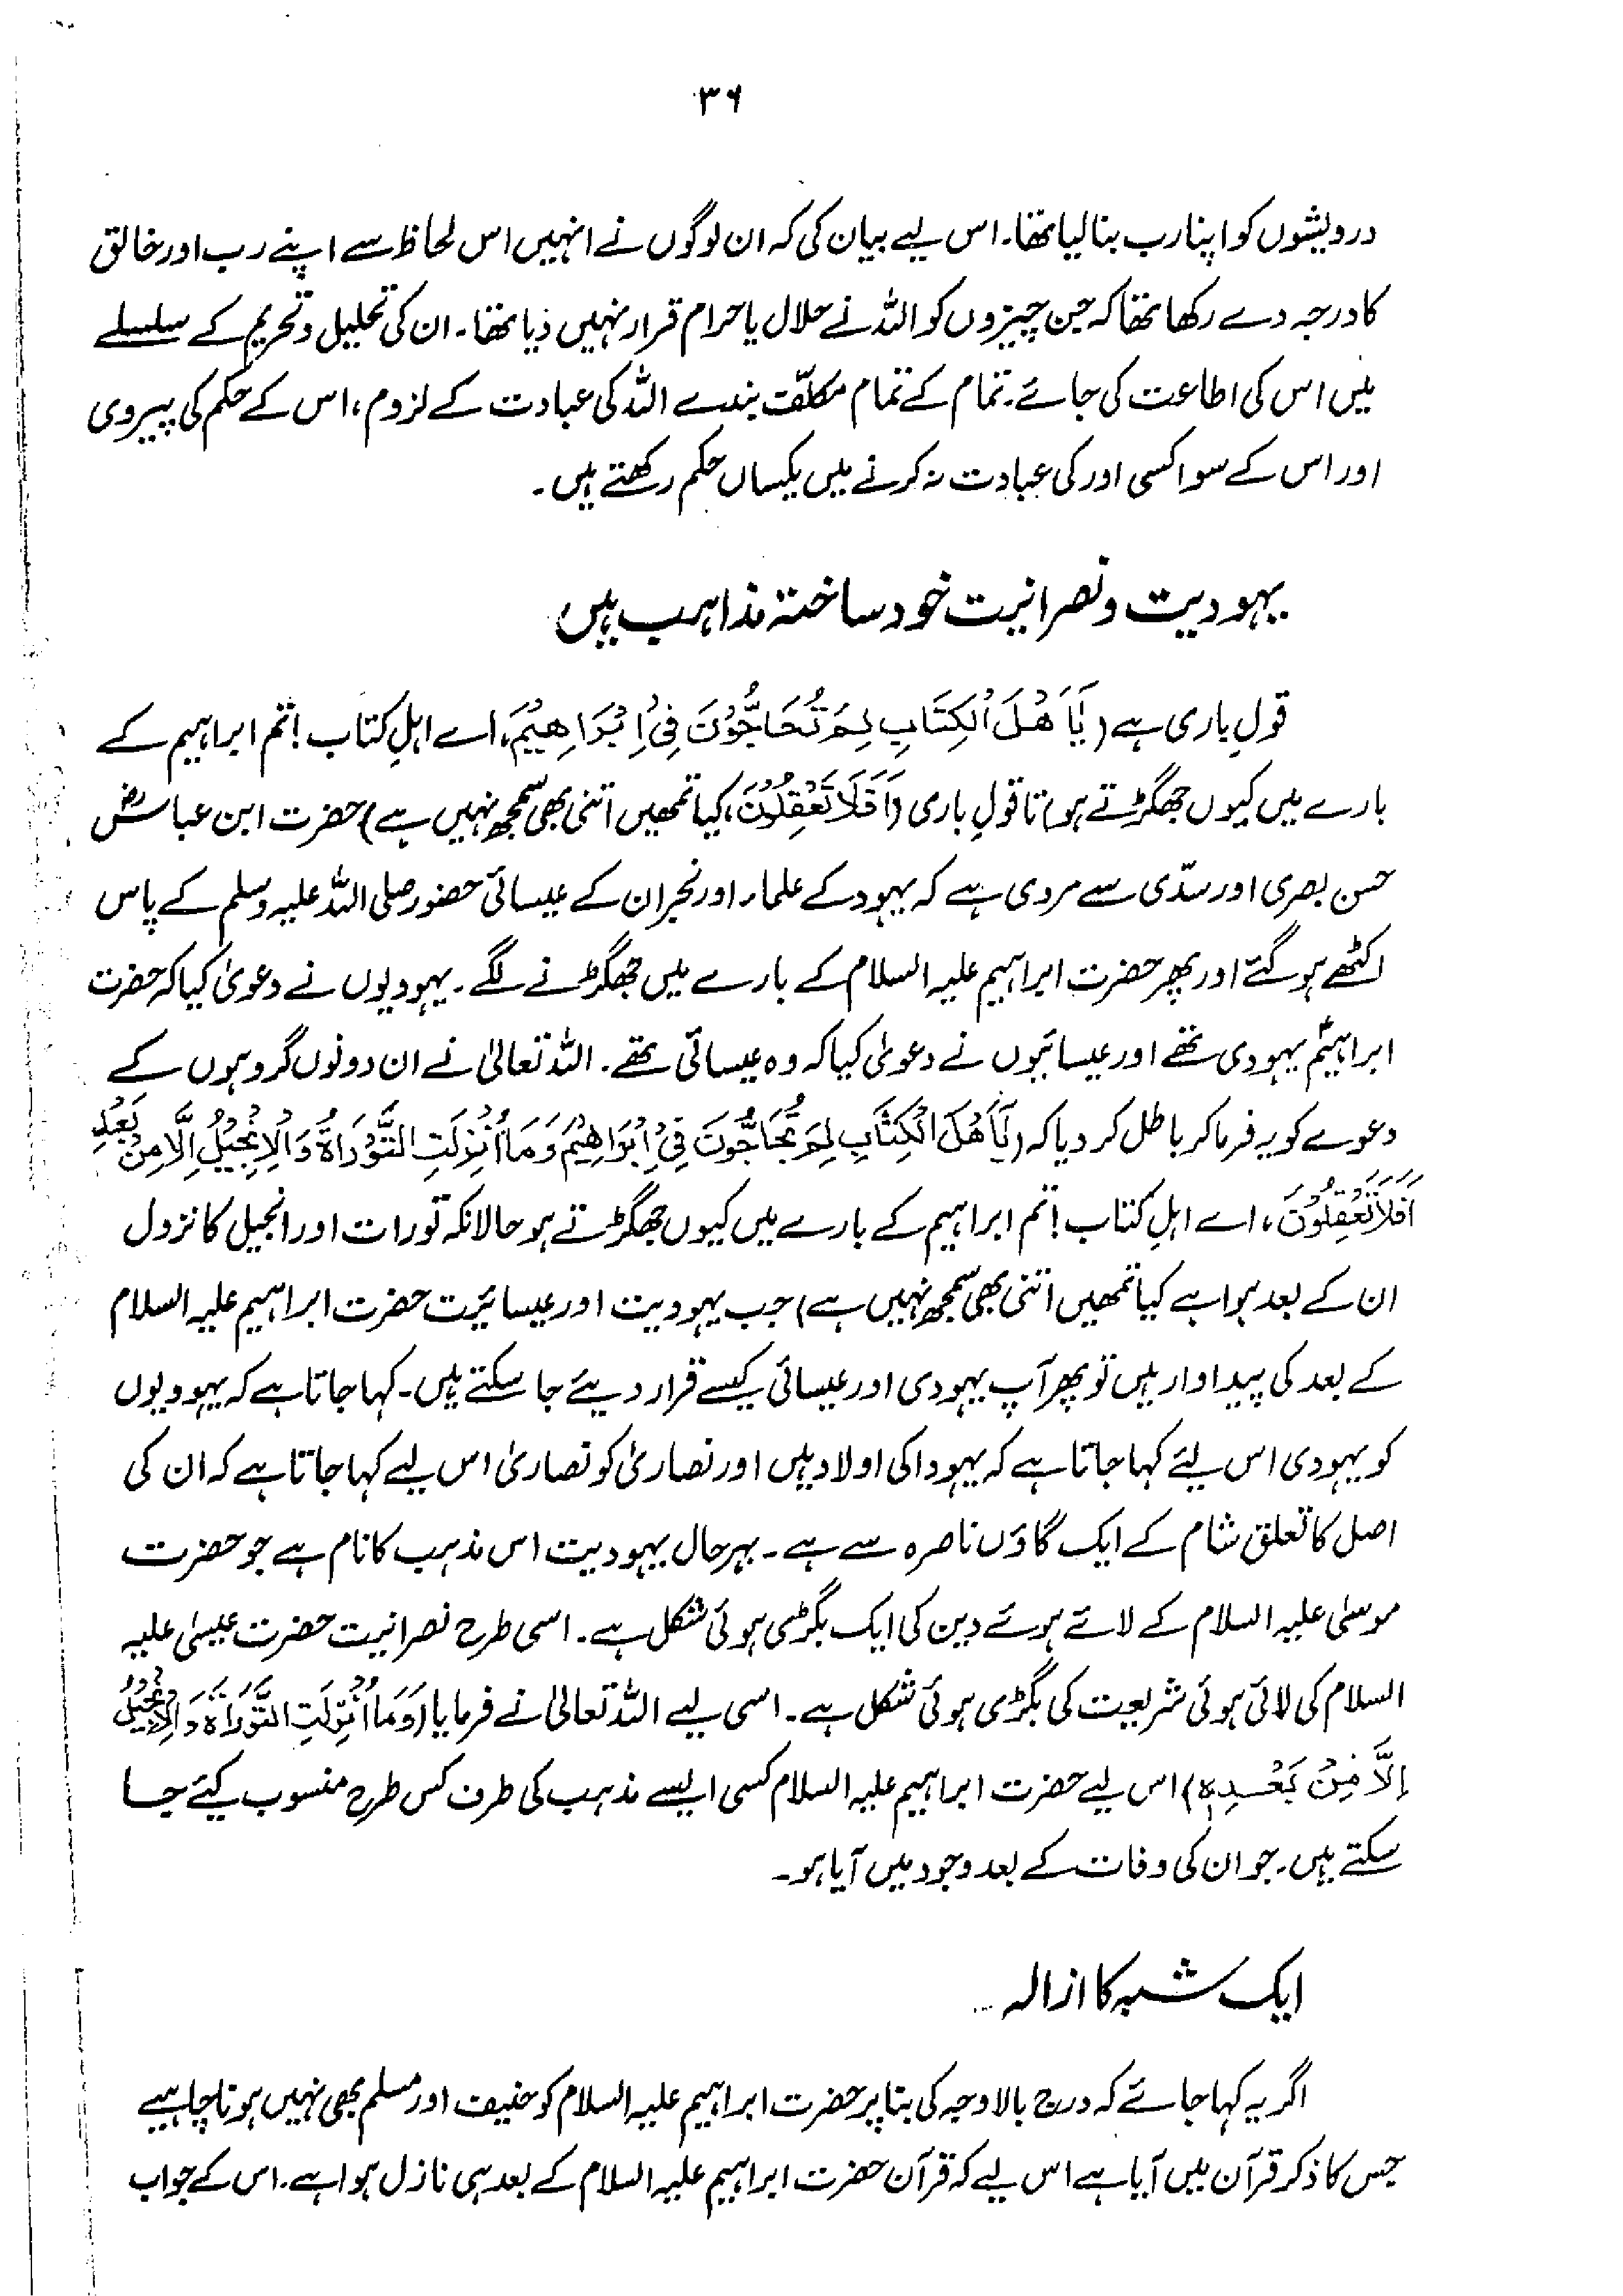 ۳۶
درویشوں کو اپنا رب بنا لیا تھا۔ اس لیے بیان کی کہ ان لوگوں نے انہیں اس لحاظ سے اپنے رب اور خالق
کا درجہ دے رکھا تھا کہ جن چیزوں کو اللہ نے حلال یا حرام قرار نہیں دیا تھا۔ ان کی تحلیل و تحریم کے سلسلے
میں اس کی اطاعت کی جائے۔ تمام کے تمام مکلّف بندے اللہ کی عبادت کے لزوم، اس کے حکم کی پیروی
اور اس کے سوا کسی اور کی عبادت نہ کرنے میں یکساں حکم رکھتے ہیں۔
یہودیت و نصرانیت خود ساختہ مذاہب ہیں
قولِ باری ہے (یَا اَھْلَ الْکِتَابِ لِمَ تُحَاجُّوْنَ فِیْ اِبْرَاھِیْمَ، اے اہلِ کتاب! تم ابراہیم کے
بارے میں کیوں جھگڑتے ہو) تا قولِ باری (اَفَلَا تَعْقِلُوْنَ، کیا تمھیں اتنی بھی سمجھ نہیں ہے) حضرت ابن عباسؓ
حسن بصری اور سدّی سے مروی ہے کہ یہود کے علماء اور نجران کے عیسائی حضور صلی اللہ علیہ وسلم کے پاس
اکٹھے ہو گئے اور پھر حضرت ابراہیم علیہ السلام کے بارے میں جھگڑنے لگے۔ یہودیوں نے دعویٰ کیا کہ حضرت
ابراہیمؑ یہودی تھے اور عیسائیوں نے دعویٰ کیا کہ وہ عیسائی تھے۔ اللہ تعالیٰ نے ان دونوں گروہوں کے
دعوے کو یہ فرما کر باطل کر دیا کہ (یَا اَھْلَ الْکِتَابِ لِمَ تُحَاجُّوْنَ فِیْ اِبْرَاھِیْمَ وَمَا اُنْزِلَتِ التَّوْرَاۃُ وَالْاِنْجِیْلُ اِلَّا مِنْ بَعْدِہٖ
اَفَلَا تَعْقِلُوْنَ، اے اہلِ کتاب! تم ابراہیم کے بارے میں کیوں جھگڑتے ہو حالانکہ تورات اور انجیل کا نزول
ان کے بعد ہوا ہے کیا تمھیں اتنی بھی سمجھ نہیں ہے) جب یہودیت اور عیسائیت حضرت ابراہیم علیہ السلام
کے بعد کی پیداوار ہیں تو پھر آپ یہودی اور عیسائی کیسے قرار دیئے جا سکتے ہیں۔ کہا جاتا ہے کہ یہودیوں
کو یہودی اس لئے کہا جاتا ہے کہ یہودا کی اولاد ہیں اور نصاریٰ کو نصاریٰ اس لیے کہا جاتا ہے کہ ان کی
اصل کا تعلق شام کے ایک گاؤں ناصرہ سے ہے۔ بہر حال یہودیت اس مذہب کا نام ہے جو حضرت
موسیٰ علیہ السلام کے لائے ہوئے دین کی ایک بگڑی ہوئی شکل ہے۔ اسی طرح نصرانیت حضرت عیسیٰ علیہ
السلام کی لائی ہوئی شریعت کی بگڑی ہوئی شکل ہے۔ اسی لیے اللہ تعالیٰ نے فرمایا (وَمَا اُنْزِلَتِ التَّوْرَاۃُ وَالْاِنْجِیْلُ
اِلَّا مِنْ بَعْدِہٖ) اس لیے حضرت ابراہیم علیہ السلام کسی ایسے مذہب کی طرف کس طرح منسوب کیئے جا
سکتے ہیں۔ جو ان کی وفات کے بعد وجود میں آیا ہو۔
ایک شبہ کا ازالہ
اگر یہ کہا جائے کہ درج بالا وجہ کی بنا پر حضرت ابراہیم علیہ السلام کو حنیف اور مسلم بھی نہیں ہونا چاہیے
جس کا ذکر قرآن میں آیا ہے اس لیے کہ قرآن حضرت ابراہیم علیہ السلام کے بعد ہی نازل ہوا ہے۔ اس کے جواب